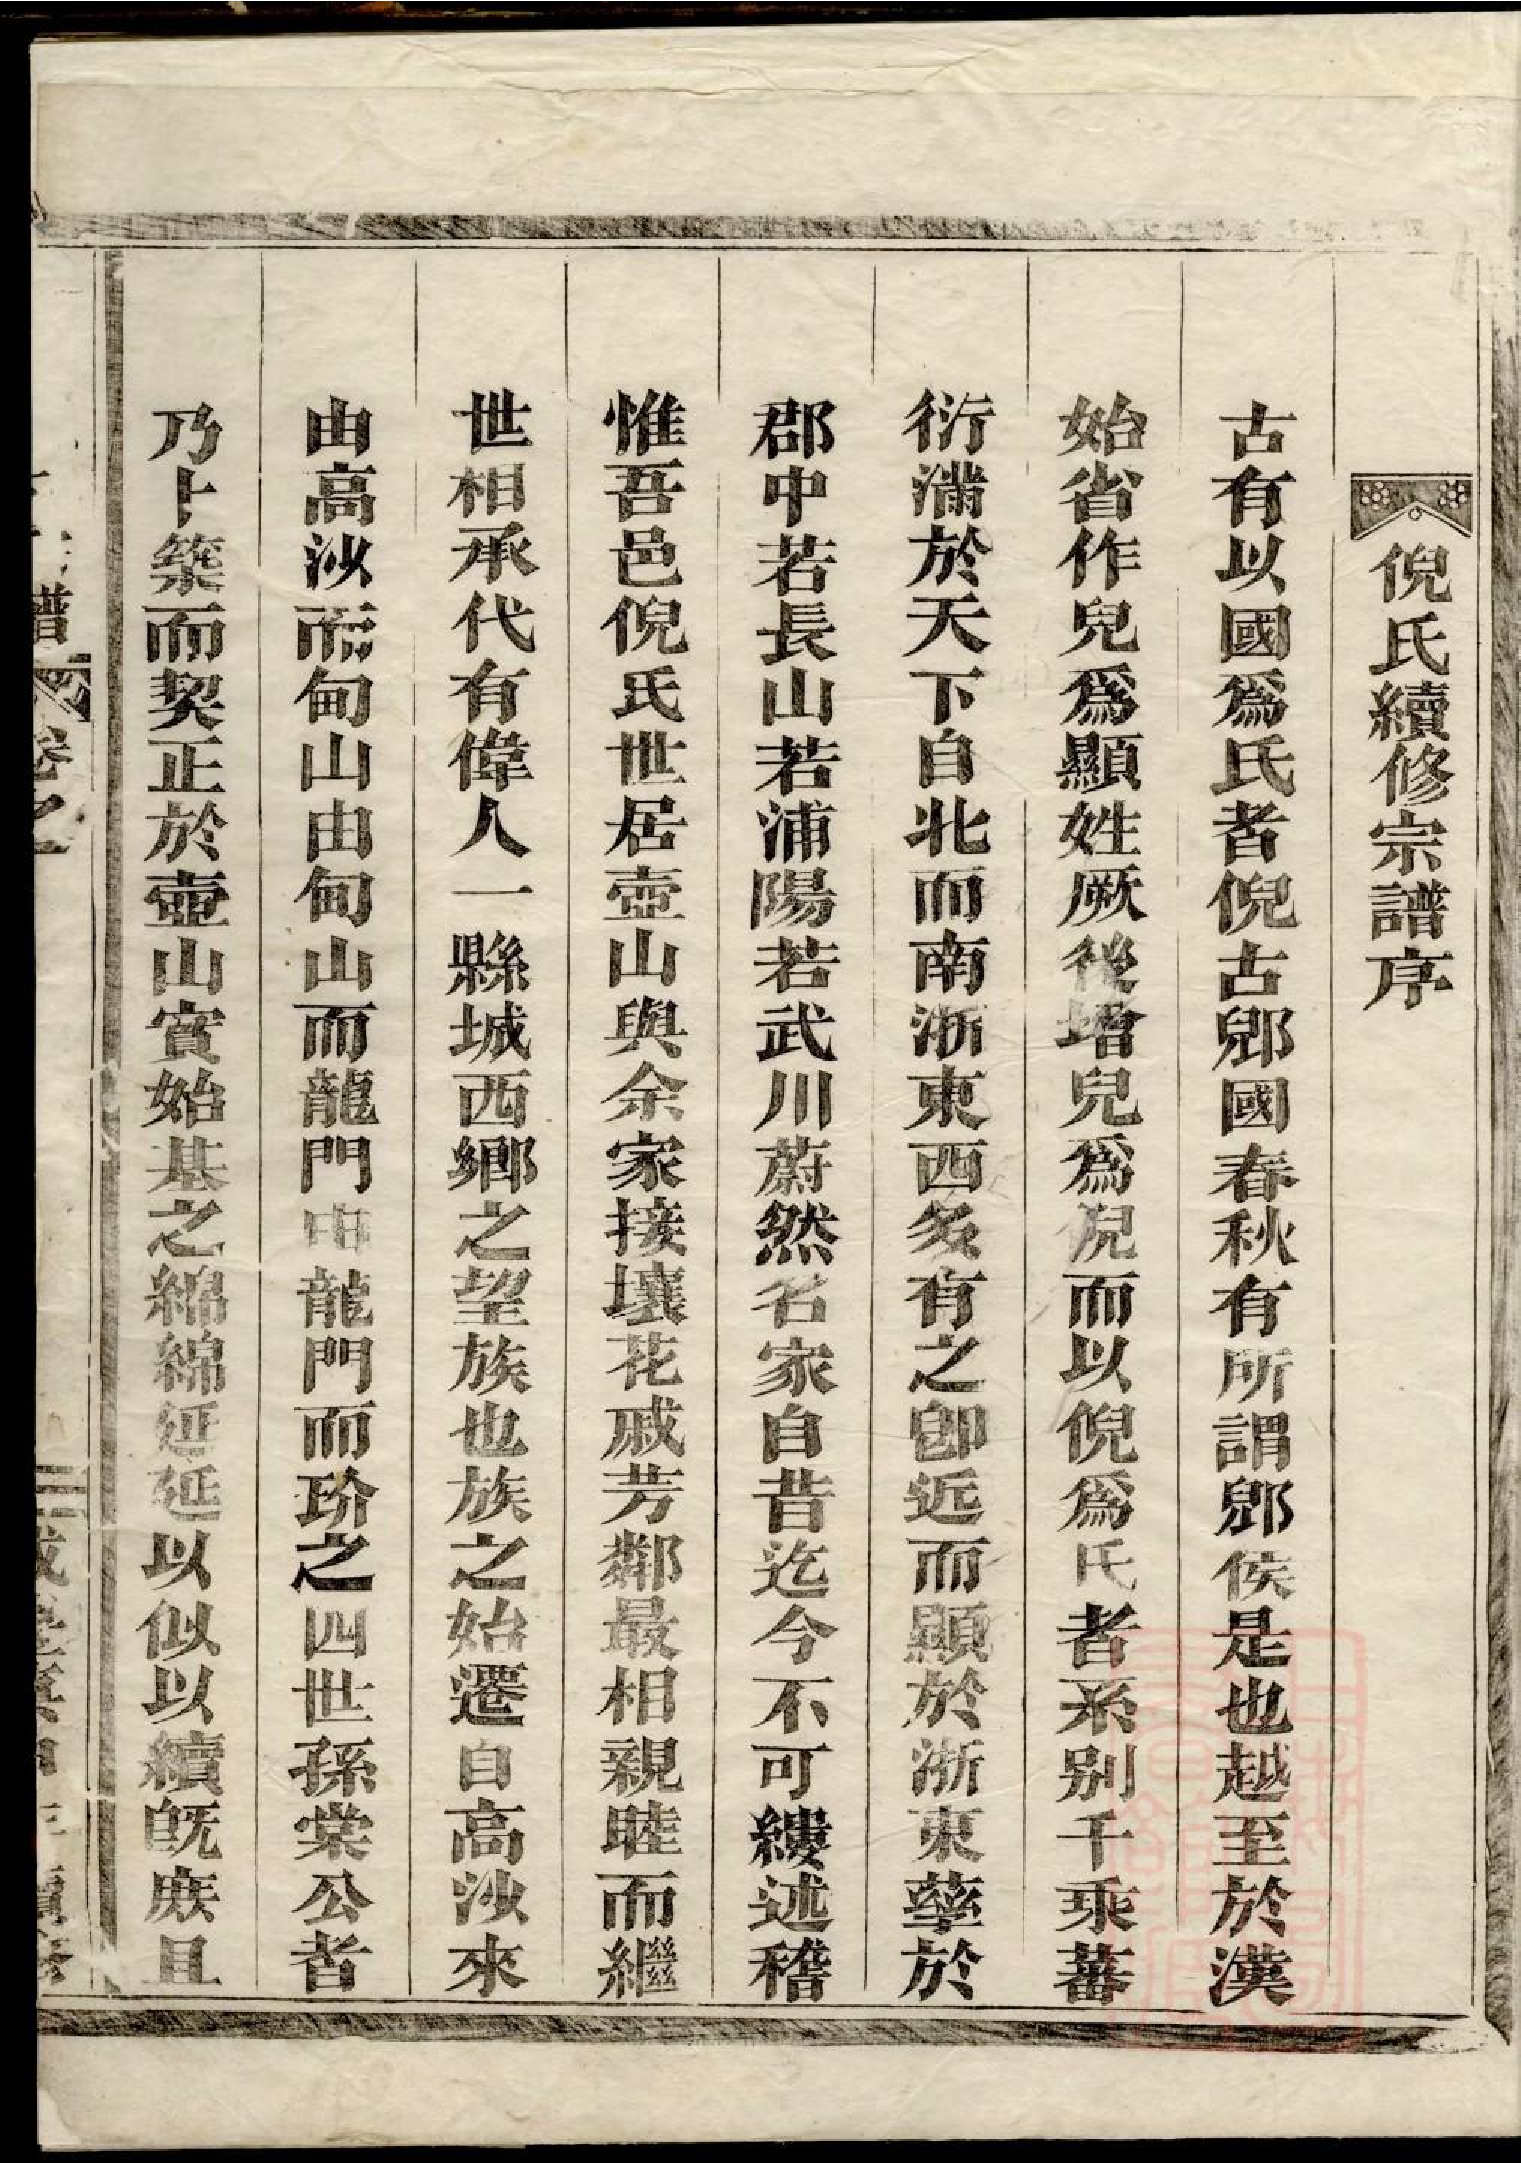 倪氏續修宗譜序
古有以國爲氏者倪古郳國春秋有所謂郳侯是也越至於漢
始省作兒爲顯姓厥後增兒爲倪而以倪爲氏者系别千乘蕃
衍滿於天下自北而南浙東西多有之卽近而顯於浙東孽於
郡中若長山若浦陽若武川蔚然名家自昔迄今不可縷述稽
惟吾邑倪氏世居壺山與余家接壤花戚芳鄰最相親睦而繼
世相承代有偉人一縣城西鄉之望族也族之始遷自高沙來
由高沙而甸山由甸山而龍門由龍門而玠之四世孫棠公者
乃卜築而契正於壺山實始基之綿綿延延以似以續旣庶且
譜 卷之